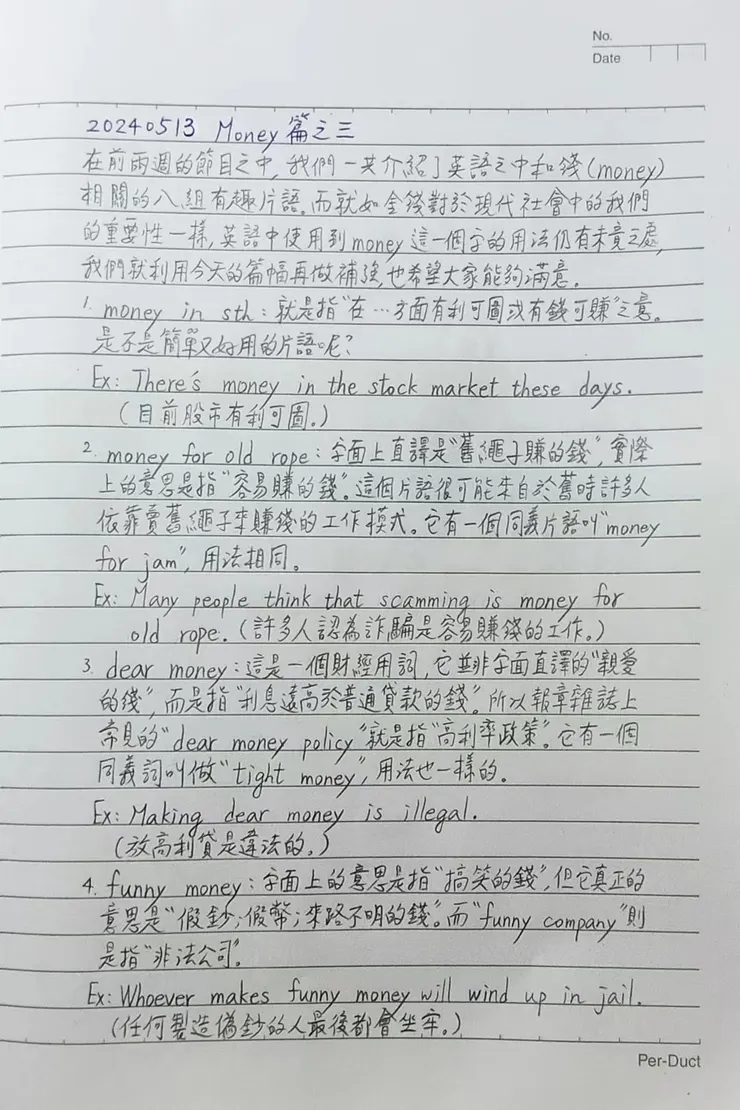 No.
Date
20240513 Money篇之三
在前兩週的節目之中,我們一共介紹了英語之中和錢(money)
相關的八組有趣片語。而就如金錢對於現代社會中的我們
的重要性一樣,英語中使用到money這一個字的用法仍有未竟之處,
我們就利用今天的篇幅再做補強,也希望大家能夠滿意。
1. money in sth:就是指“在…方面有利可圖或有錢可賺”之意。
是不是簡單又好用的片語呢?
Ex: There's money in the stock market these days.
(目前股市有利可圖。)
2. money for old rope:字面上直譯是“舊繩子賺的錢”,實際
上的意思是指“容易賺的錢”。這個片語很可能來自於舊時許多人
依靠賣舊繩子來賺錢的工作模式。它有一個同義片語叫“money
for jam”,用法相同。
Ex: Many people think that scamming is money for
old rope.(許多人認為詐騙是容易賺錢的工作。)
3. dear money:這是一個財經用詞,它並非字面直譯的“親愛
的錢”,而是指“利息遠高於普通貸款的錢”。所以報章雜誌上
常見的“dear money policy”就是指“高利率政策”。它有一個
同義詞叫做“tight money”,用法也一樣的。
Ex: Making dear money is illegal.
(放高利貸是違法的。)
4. funny money:字面上的意思是指“搞笑的錢”,但它真正的
意思是“假鈔;假幣;來路不明的錢”。而“funny company”則
是指“非法公司”。
Ex: Whoever makes funny money will wind up in jail.
(任何製造偽鈔的人最後都會坐牢。)
Per-Duct